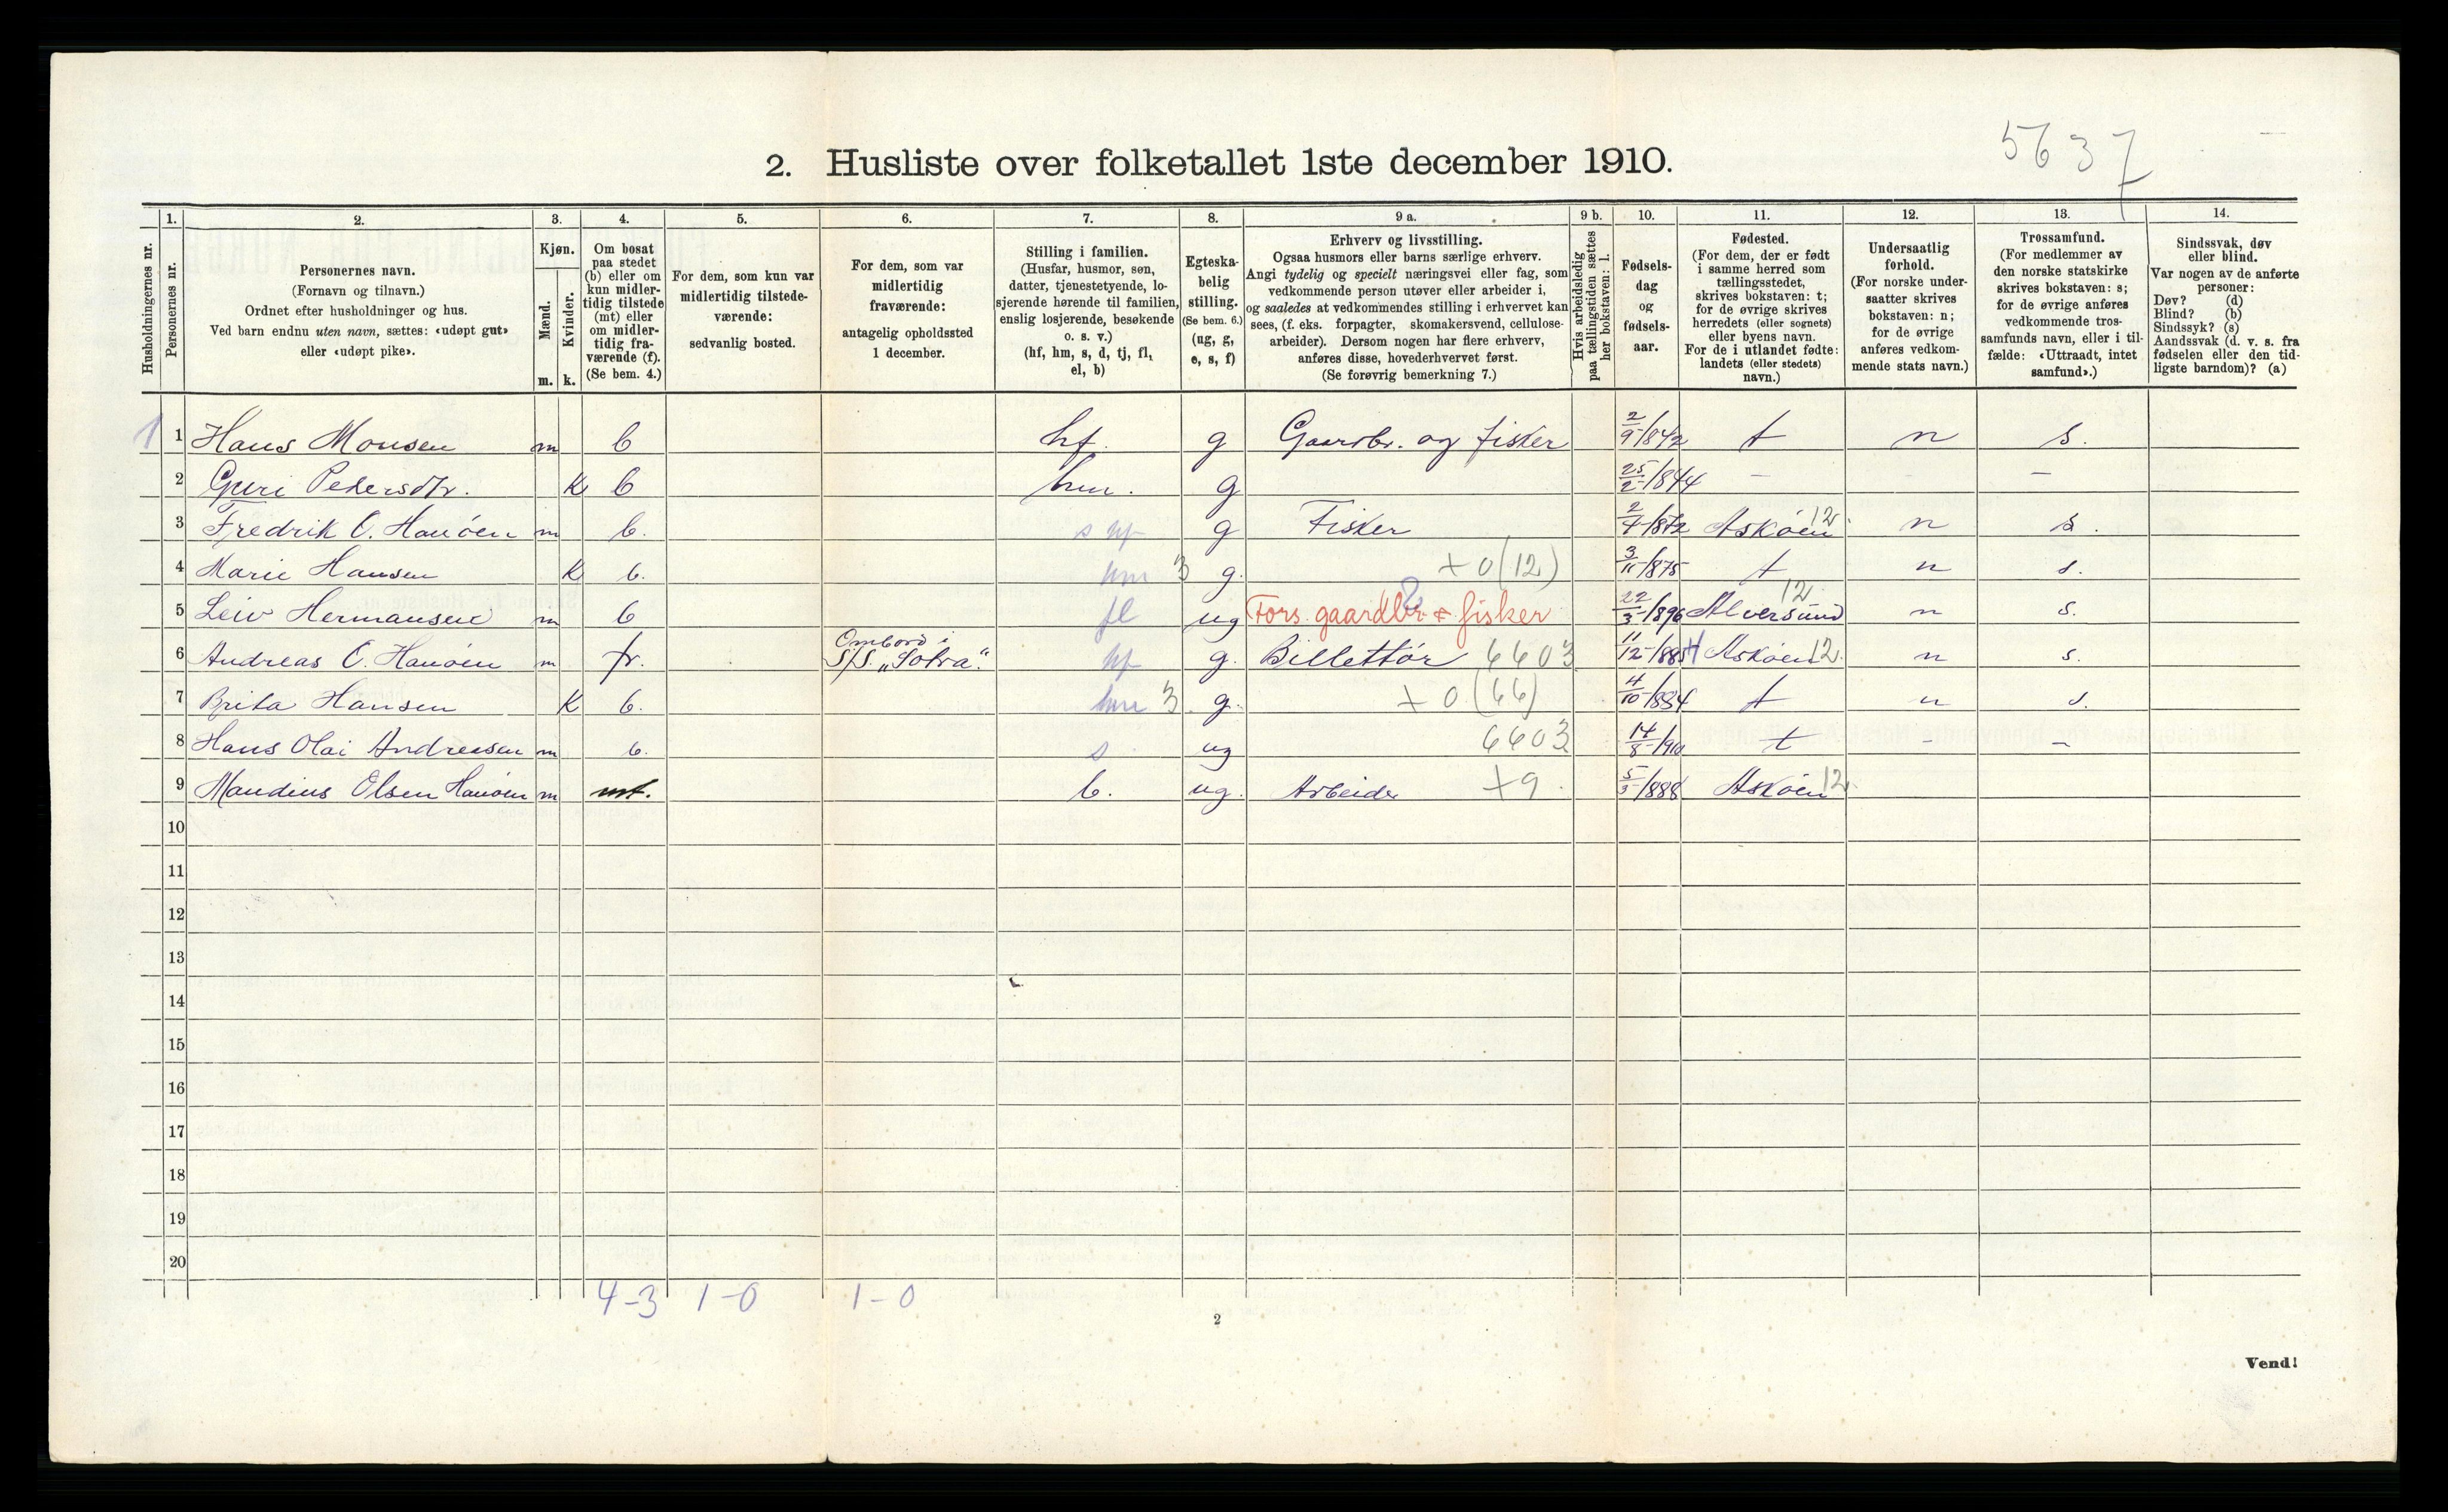 5637
2. Husliste over folketallet 1ste december 1910.
Husholdningernes nr.
1. Personernes nr.
2.
Personernes navn.
(Fornavn og tilnavn.)
Ordnet efter husholdninger og hus.
Ved barn endnu uten navn, sættes: «udøpt gut»
eller «udøpt pike».
3.
Kjøn.
Mænd. m.
Kvinder. k.
4.
Om bosat
paa stedet
(b) eller om
kun midler-
tidig tilstede
(mt) eller
om midler-
tidig fra-
værende (f).
(Se bem. 4.)
5.
For dem, som kun var
midlertidig tilstede-
værende:
sedvanlig bosted.
6.
For dem, som var
midlertidig
fraværende:
antagelig opholdssted
1 december.
7.
Stilling i familien.
(Husfar, husmor, søn,
datter, tjenestetyende, lo-
sjerende hørende til familien,
enslig losjerende, besøkende
o. s. v.)
(hf, hm, s, d, tj, fl,
el, b)
8.
Egteska-
belig
stilling.
(Se bem. 6.)
(ug, g,
e, s, f)
9 a.
Erhverv og livsstilling.
Ogsaa husmors eller barns særlige erhverv.
Angi tydelig og specielt næringsvei eller fag, som
vedkommende person utøver eller arbeider i,
og saaledes at vedkommendes stilling i erhvervet kan
sees, (f. eks. forpagter, skomakersvend, cellulose-
arbeider). Dersom nogen har flere erhverv,
anføres disse, hovederhvervet først.
(Se forøvrig bemerkning 7.)
9 b.
Hvis arbeidsledig
paa tællingstiden sættes
her bokstaven: l.
10.
Fødsels-
dag
og
fødsels-
aar.
11.
Fødested.
(For dem, der er født
i samme herred som
tællingsstedet,
skrives bokstaven: t;
for de øvrige skrives
herredets (eller sognets)
eller byens navn.
For de i utlandet fødte:
landets (eller stedets)
navn.)
12.
Undersaatlig
forhold.
(For norske under-
saatter skrives
bokstaven: n;
for de øvrige
anføres vedkom-
mende stats navn.)
13.
Trossamfund.
(For medlemmer av
den norske statskirke
skrives bokstaven: s;
for de øvrige anføres
vedkommende tros-
samfunds navn, eller i til-
fælde: «Uttraadt, intet
samfund».)
14.
Sindssvak, døv
eller blind.
Var nogen av de anførte
personer:
Døv? (d)
Blind? (b)
Sindssyk? (s)
Aandssvak (d. v. s. fra
fødselen eller den tid-
ligste barndom)? (a)
1 1 Hans Monsen m b hf. g Gaardbr. og fisker 2/9/1842 t n s.
2 Guri Pedersdtr. K b hm. g 25/2/1844 - - -
3 Fredrik O. Hanøen m b. s hf g Fisker 2/4/1872 Askøen 12 n s.
4 Marie Hansen K b. hm 3 g. +0 (12) 3/11/1875 t n s.
5 Leiv Hermansen m b fl ug Fors. gaardbr. & fisker 22/3/1896 Alversund 12 n s.
6 Andreas O. Hanøen m fr. Ombord i S/S. „Sotra." hf g. Billettør 6603 11/12/1885 Askøen 12. n s.
7 Brita Hansen K b. hm 3 g. +0 (66) 4/10/1884 t n s.
8 Hans Olai Andreasen m b. s ug 6603 14/8/1910 t - -
9 Mandius Olsen Hanøen m mt. b. ug. Arbeider +9 5/5/1888 Askøen 12
10
11
12
13
14
15
16
17
18
19
20
4-3 1-0 1-0
2
Vend!